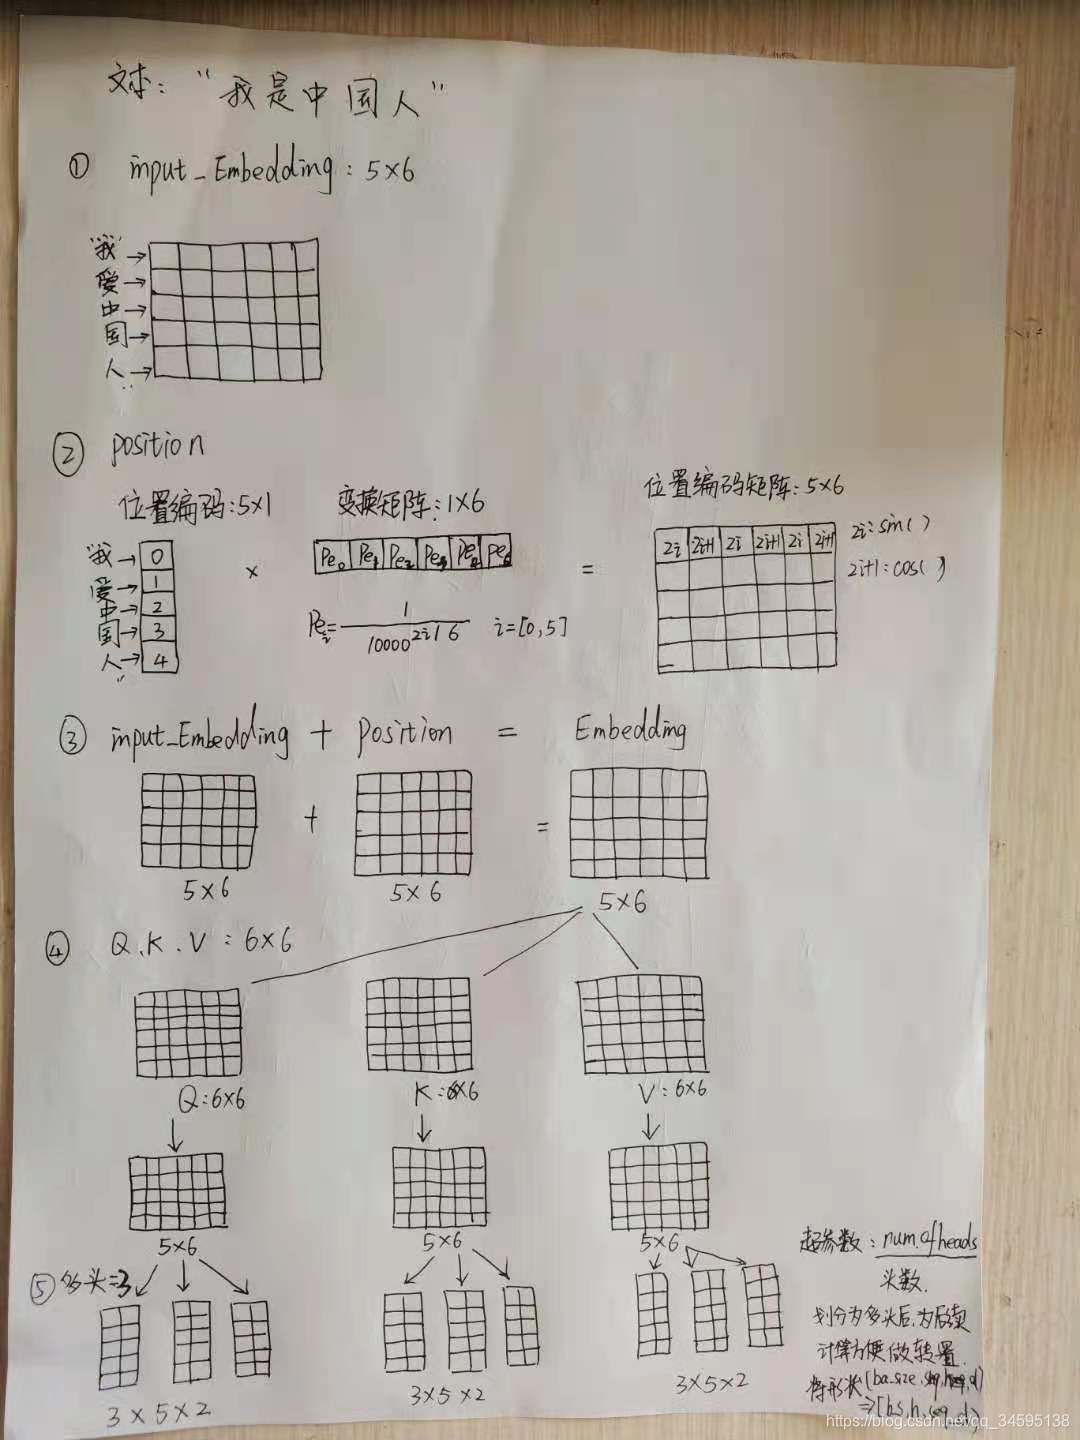 文本："我是中国人"
① input_Embedding：5×6
"我→
爱→
中→
国→
人→
"
② position
位置编码：5×1 变换矩阵：1×6 位置编码矩阵：5×6
"我→ 0
爱→ 1
中→ 2
国→ 3
人→ 4
"
×
Pe0 Pe1 Pe2 Pe3 Pe4 Pe5
=
2i 2i+1 2i 2i+1 2i 2i+1
2i：sin( )
2i+1：cos( )
Pei= 1 / 10000^2i/6 i=[0,5]
③ input_Embedding + position = Embedding
+ =
5×6 5×6 5×6
④ Q.K.V：6×6
Q：6×6 K：6×6 V：6×6
5×6 5×6 5×6
⑤ 多头=3
3×5×2 3×5×2 3×5×2
超参数：num.of heads
头数.
划分为多头后,为后续
计算方便做转置.
将形状[ba_size,seq,head,d]
⇒[bs,h,seq,d]
https://blog.csdn.net/qq_34595138